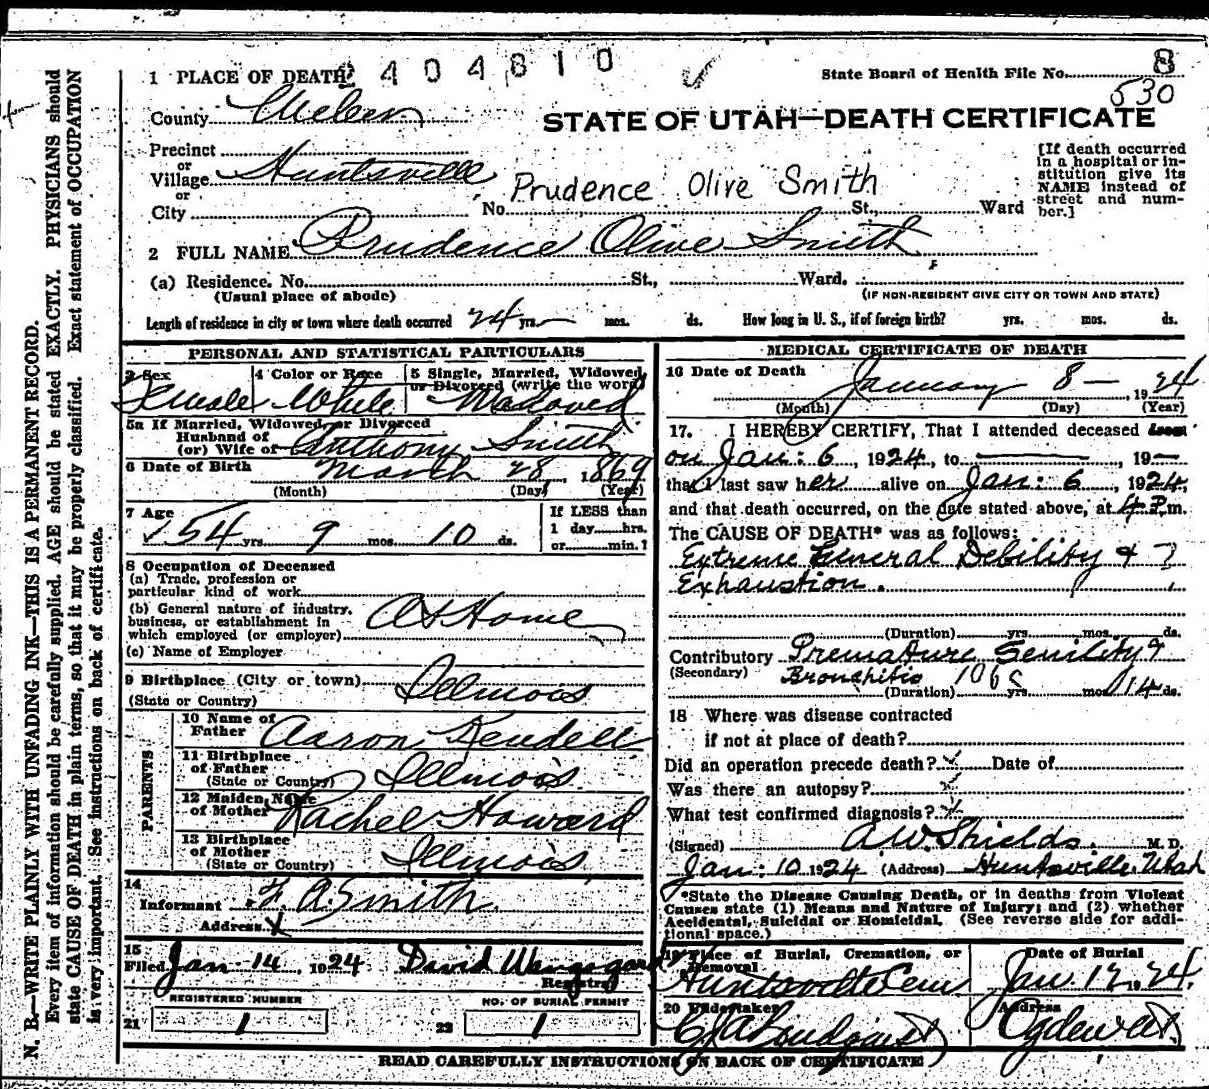 2404810
8
State Board of Health File No.
530
1 PLACE OF DEATH
County Weber
STATE OF UTAH—DEATH CERTIFICATE
Precinct
or
Village Huntsville
or
City
Prudence Olive Smith
No. St., Ward
[If death occurred
in a hospital or in-
stitution give its
NAME instead of
street and num-
ber.]
2 FULL NAME Prudence Olive Smith
(a) Residence. No. St., Ward.
(Usual place of abode)
(IF NON-RESIDENT GIVE CITY OR TOWN AND STATE)
Length of residence in city or town where death occurred 24 yrs. — mos. ds. How long in U. S., if of foreign birth? yrs. mos. ds.
PERSONAL AND STATISTICAL PARTICULARS
3 Sex
Female
4 Color or Race
White
5 Single, Married, Widowed,
or Divorced (write the word)
Widowed
5a If Married, Widowed, or Divorced
Husband of
(or) Wife of Anthony Smith
6 Date of Birth March 28, 1869
(Month) (Day) (Year)
7 Age
54 yrs. 9 mos. 10 ds.
If LESS than
1 day hrs.
or min.?
8 Occupation of Deceased
(a) Trade, profession or
particular kind of work
(b) General nature of industry,
business, or establishment in
which employed (or employer)
At Home
(c) Name of Employer
9 Birthplace (City or town)
(State or Country)
Illinois
PARENTS
10 Name of
Father
Aaron Kendell
11 Birthplace
of Father
(State or Country)
Illinois
12 Maiden Name
of Mother
Rachel Howard
13 Birthplace
of Mother
(State or Country)
Illinois
14
Informant F. A. Smith
Address
15
Filed Jan 14, 1924 David Wangsgaard
Registrar
REGISTERED NUMBER
21 1
NO. OF BURIAL PERMIT
22 1
MEDICAL CERTIFICATE OF DEATH
16 Date of Death
January 8 — , 1924
(Month) (Day) (Year)
17. I HEREBY CERTIFY, That I attended deceased from
on Jan: 6, 1924, to — , 19—
that I last saw her alive on Jan: 6, 1924,
and that death occurred, on the date stated above, at 4 P.m.
The CAUSE OF DEATH* was as follows:
Extreme General Debility & ?
Exhaustion.
(Duration) yrs. mos. ds.
Contributory Premature Senility &
(Secondary) Bronchitis 106c
(Duration) yrs. mos. 14 ds.
18 Where was disease contracted
if not at place of death?
Did an operation precede death? Date of
Was there an autopsy?
What test confirmed diagnosis?
(Signed) A.W. Shields. M.D.
Jan: 10 1924 (Address) Huntsville Utah
*State the Disease Causing Death, or in deaths from Violent
Causes state (1) Means and Nature of Injury; and (2) whether
Accidental, Suicidal or Homicidal. (See reverse side for addi-
tional space.)
19 Place of Burial, Cremation, or
Removal
Huntsville Cem
Date of Burial
Jan. 12, 1924.
20 Undertaker
Address
READ CAREFULLY INSTRUCTIONS ON BACK OF CERTIFICATE
N. B.—WRITE PLAINLY WITH UNFADING INK—THIS IS A PERMANENT RECORD.
Every item of information should be carefully supplied. AGE should be stated EXACTLY. PHYSICIANS should
state CAUSE OF DEATH in plain terms, so that it may be properly classified. Exact statement of OCCUPATION
is very important. See instructions on back of certificate.